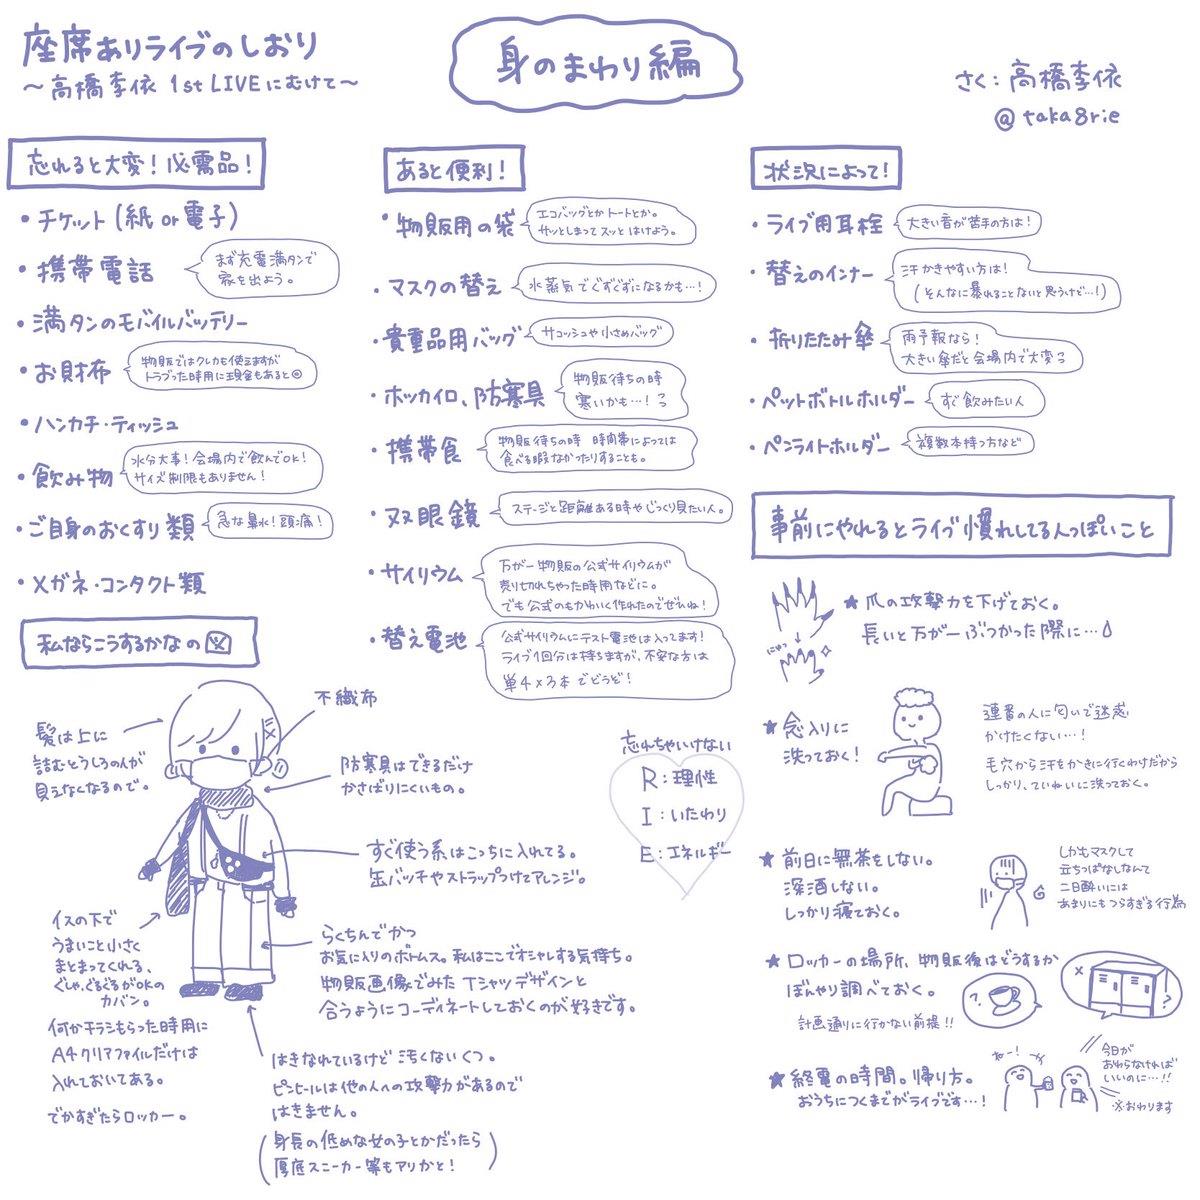 座席ありライブのしおり
～高橋李依 1st LIVEにむけて～
身のまわり編
さく：高橋李依
@taka8rie
忘れると大変！必需品！
・チケット(紙or電子)
・携帯電話
まず充電満タンで
家を出よう。
・満タンのモバイルバッテリー
・お財布
物販ではクレカも使えますが
トラブった時用に現金もあると◎
・ハンカチ・ティッシュ
・飲み物
水分大事！会場内で飲んでOK！
サイズ制限もありません！
・ご自身のおくすり類
急な鼻水！頭痛！
・メガネ・コンタクト類
あると便利！
・物販用の袋
エコバッグとかトートとか。
サッとしまってスッとはけよう。
・マスクの替え
水蒸気でぐずぐずになるかも…！
・貴重品用バッグ
サコッシュや小さめバッグ
・ホッカイロ、防寒具
物販待ちの時
寒いかも…！
・携帯食
物販待ちの時 時間帯によっては
食べる暇なかったりすることも。
・双眼鏡
ステージと距離ある時やじっくり見たい人。
・サイリウム
万が一物販の公式サイリウムが
売り切れちゃった時用などに。
でも公式のもかわいく作れたのでぜひね！
・替え電池
公式サイリウムにテスト電池は入ってます！
ライブ1回分は持ちますが、不安な方は
単4×3本でどうぞ！
状況によって！
・ライブ用耳栓
大きい音が苦手の方は！
・替えのインナー
汗かきやすい方は！
(そんなに暴れることないと思うけど…！)
・折りたたみ傘
雨予報なら！
大きい傘だと会場内で大変っ
・ペットボトルホルダー
すぐ飲みたい人
・ペンライトホルダー
複数本持つ方など
私ならこうするかなの図
髪は上に
詰むとうしろの人が
見えなくなるので。
不織布
防寒具はできるだけ
かさばりにくいもの。
すぐ使う系はこっちに入れてる。
缶バッチやストラップつけてアレンジ。
イスの下で
うまいこと小さく
まとまってくれる、
ぐしゃぐるぐるがOKの
カバン。
何かチラシもらった時用に
A4クリアファイルだけは
入れておいてある。
でかすぎたらロッカー。
らくちんでかつ
お気に入りのボトムス。私はここでオシャレする気持ち。
物販画像でみたTシャツデザインと
合うようにコーディネートしておくのが好きです。
はきなれているけど汚くないくつ。
ピンヒールは他の人への攻撃力があるので
はきません。
(身長の低めな女の子とかだったら
厚底スニーカー等もアリかと！)
忘れちゃいけない
R：理性
I：いたわり
E：エネルギー
事前にやれるとライブ慣れしてる人っぽいこと
★爪の攻撃力を下げておく。
長いと万が一ぶつかった際に…
にゅっ
★念入りに
洗っておく！
連番の人に匂いで迷惑
かけたくない…！
毛穴から汗をかきに行くわけだから
しっかり、ていねいに洗っておく。
★前日に無茶をしない。
深酒しない。
しっかり寝ておく。
しかもマスクして
立ちっぱなしなんて
二日酔いには
あまりにもつらすぎる行為
★ロッカーの場所、物販後はどうするか
ぼんやり調べておく。
計画通りに行かない前提!!
?
×
?
★終電の時間。帰り方。
おうちにつくまでがライブです…！
ねー！
今日が
おわらなければ
いいのに…!!
※おわります